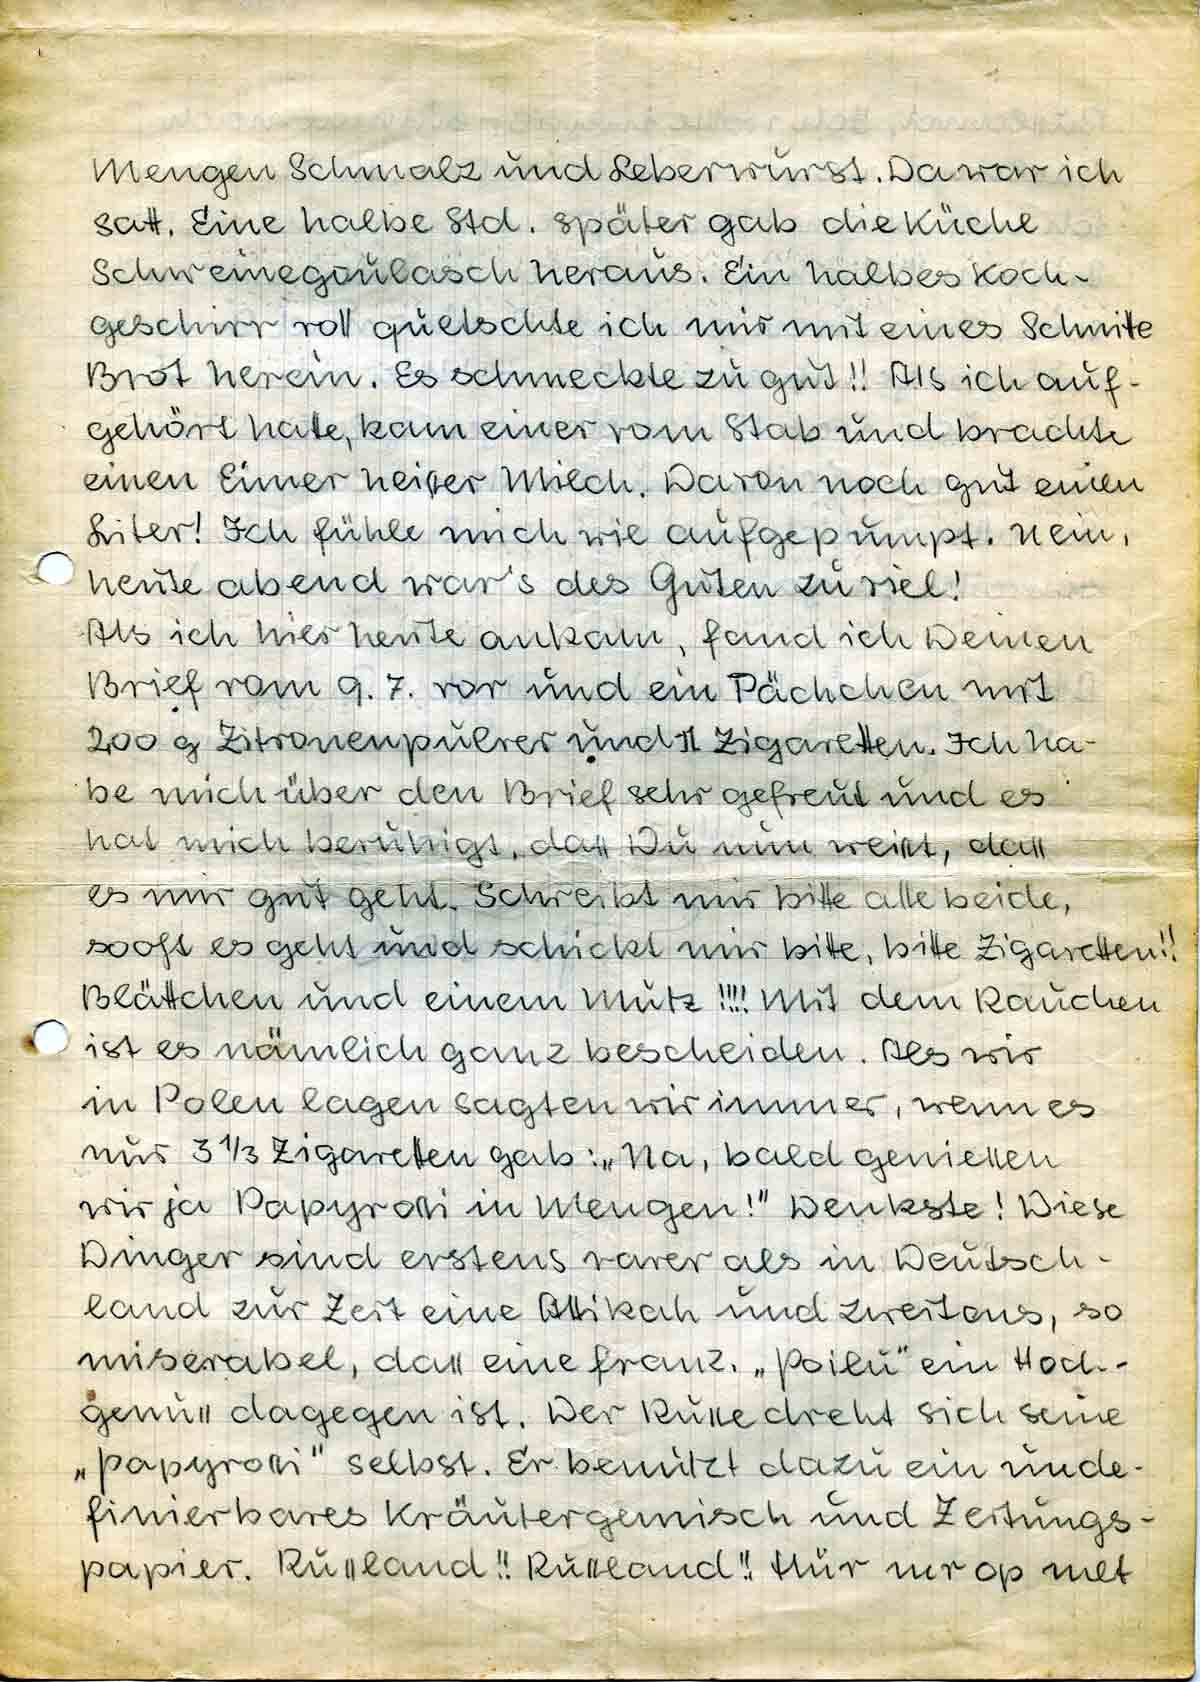 Mengen Schmalz und Leberwurst. Da war ich
satt. Eine halbe Std. später gab die Küche
Schweinegoulasch heraus. Ein halbes Koch-
geschirr voll quetschte ich mir mit eines Schnitte
Brot herein. Es schmeckte zu gut!! Als ich auf-
gehört hatte, kam einer vom Stab und brachte
einen Eimer heißer Milch. Davon noch gut einen
Liter! Ich fühle mich wie aufgepumpt. Nein,
heute abend war's des Guten zuviel!
Als ich hier heute ankam, fand ich Deinen
Brief vom 9. 7. vor und ein Pächchen mit
200 g Zitronenpulver und 11 Zigaretten. Ich ha-
be mich über den Brief sehr gefreut und es
hat mich beruhigt, daß Du nun weißt, daß
es mir gut geht. Schreibt mir bitte alle beide,
sooft es geht und schickt mir bitte, bitte Zigaretten!!
Blättchen und einem Mutz !!!! Mit dem Rauchen
ist es nämlich ganz bescheiden. Als wir
in Polen lagen sagten wir immer, wenn es
nur 3 1/3 Zigaretten gab: „Na, bald genießen
wir ja Papyroßi in Mengen!" Denkste! Diese
Dinger sind erstens rarer als in Deutsch-
land zur Zeit eine Attikah und zweitens, so
miserabel, daß eine franz. „Poilu" ein Hoch-
genuß dagegen ist. Der Ruße dreht sich seine
„Papyroßi" selbst. Er benützt dazu ein unde-
finierbares Kräutergemisch und Zeitungs-
papier. Rußland!! Rußland!! Hür mr op met